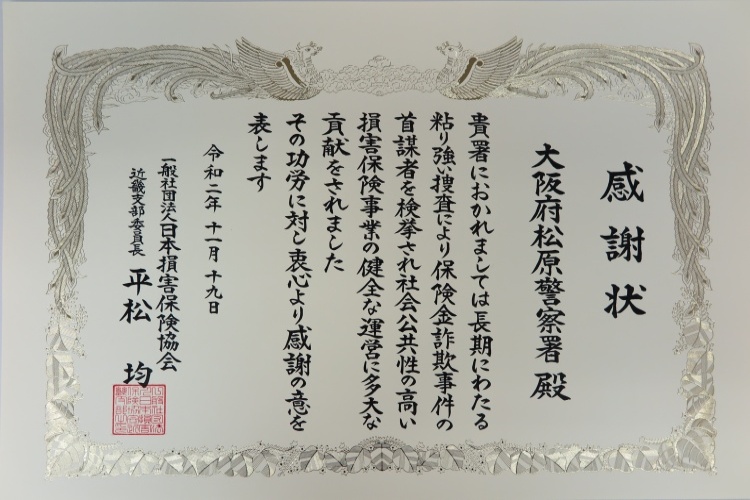 感謝状
大阪府松原警察署 殿
貴署におかれましては長期にわたる
粘り強い捜査により保険金詐欺事件の
首謀者を検挙され社会公共性の高い
損害保険事業の健全な運営に多大な
貢献をされました
その功労に対し衷心より感謝の意を
表します
令和二年 十一月 十九日
一般社団法人日本損害保険協会
近畿支部委員長 平松 均